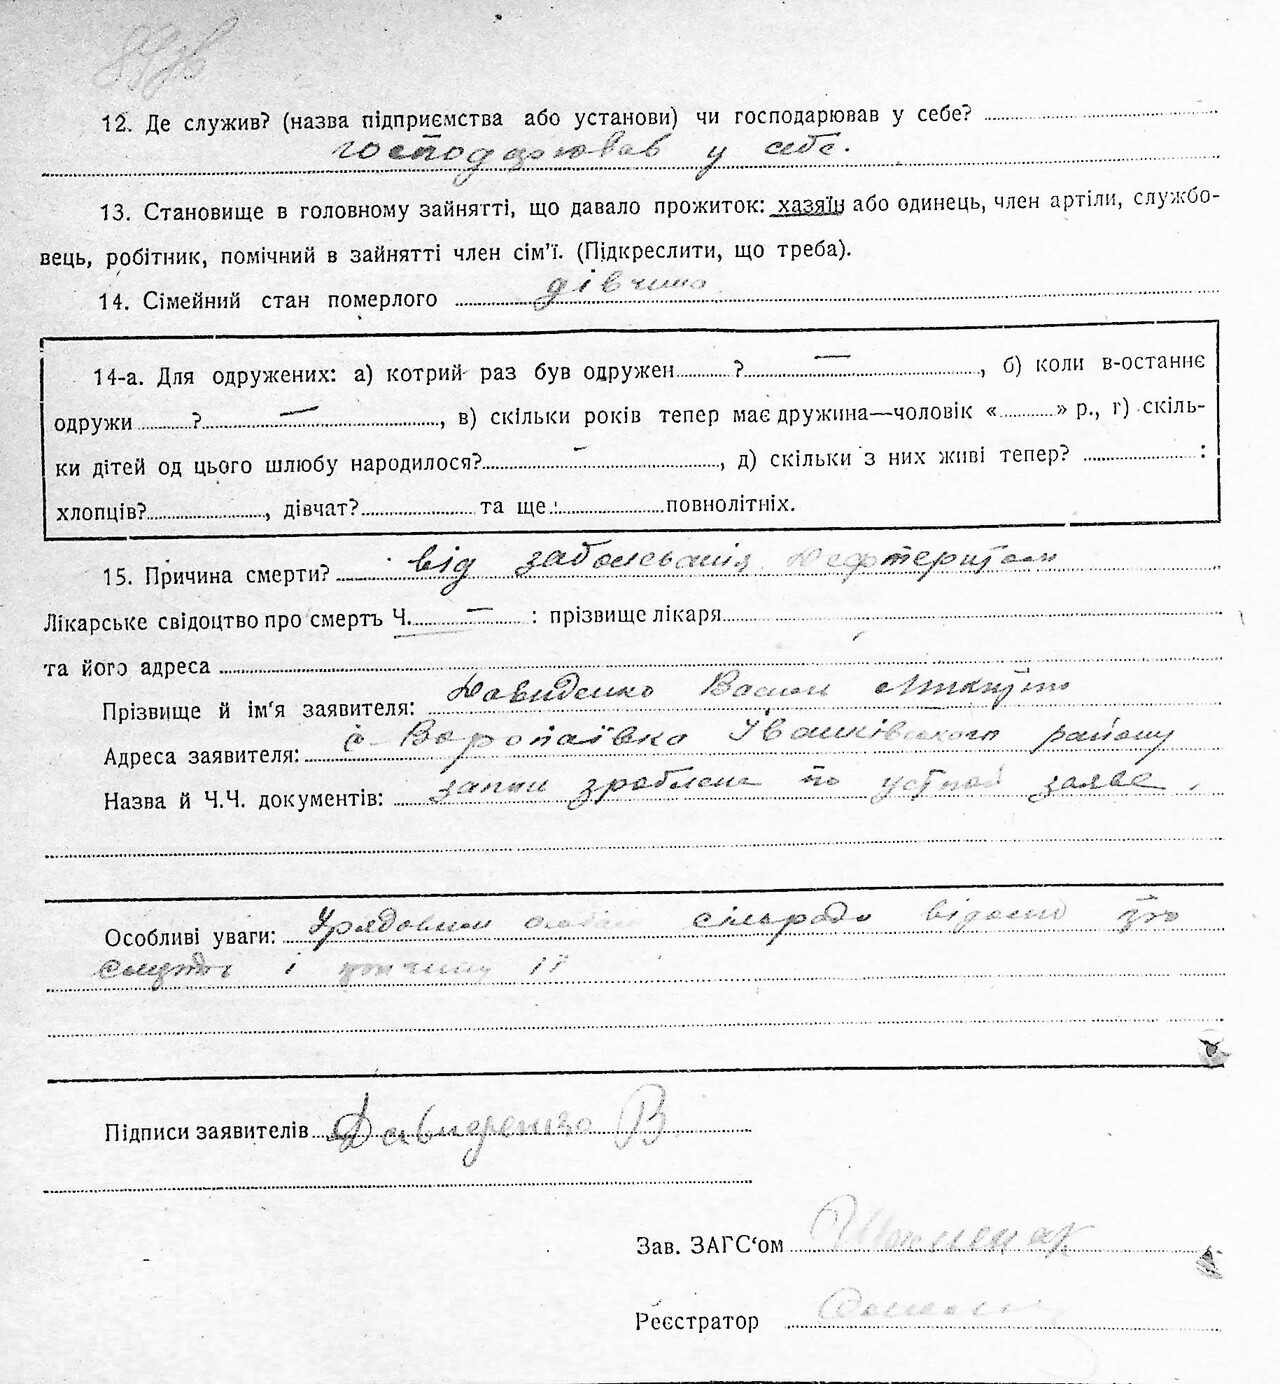 12. Де служив? (назва підприємства або установи) чи господарював у себе?
господарював у себе.
13. Становище в головному зайнятті, що давало прожиток: хазяїн або одинець, член артіли, службо-
вець, робітник, помічний в зайнятті член сім'ї. (Підкреслити, що треба).
14. Сімейний стан померлого дівчина
14-а. Для одружених: а) котрий раз був одружен ? —, б) коли в-останнє
одружи ? —, в) скільки років тепер має дружина—чоловік « » р., г) скіль-
ки дітей од цього шлюбу народилося? —, д) скільки з них живі тепер? :
хлопців?, дівчат? та ще : повнолітніх.
15. Причина смерти? від
Лікарське свідоцтво про смерть Ч. — : прізвище лікаря
та його адреса
Прізвище й ім'я заявителя: Давиденко
Адреса заявителя: с. Воропаївка Іванківського району
Назва й Ч.Ч. документів: запис зроблено по устной заяве.
Особливі уваги: Урядовим сільради відомо про
смерть і причину її
Підписи заявителів Давиденко В
Зав. ЗАГС'ом
Реєстратор